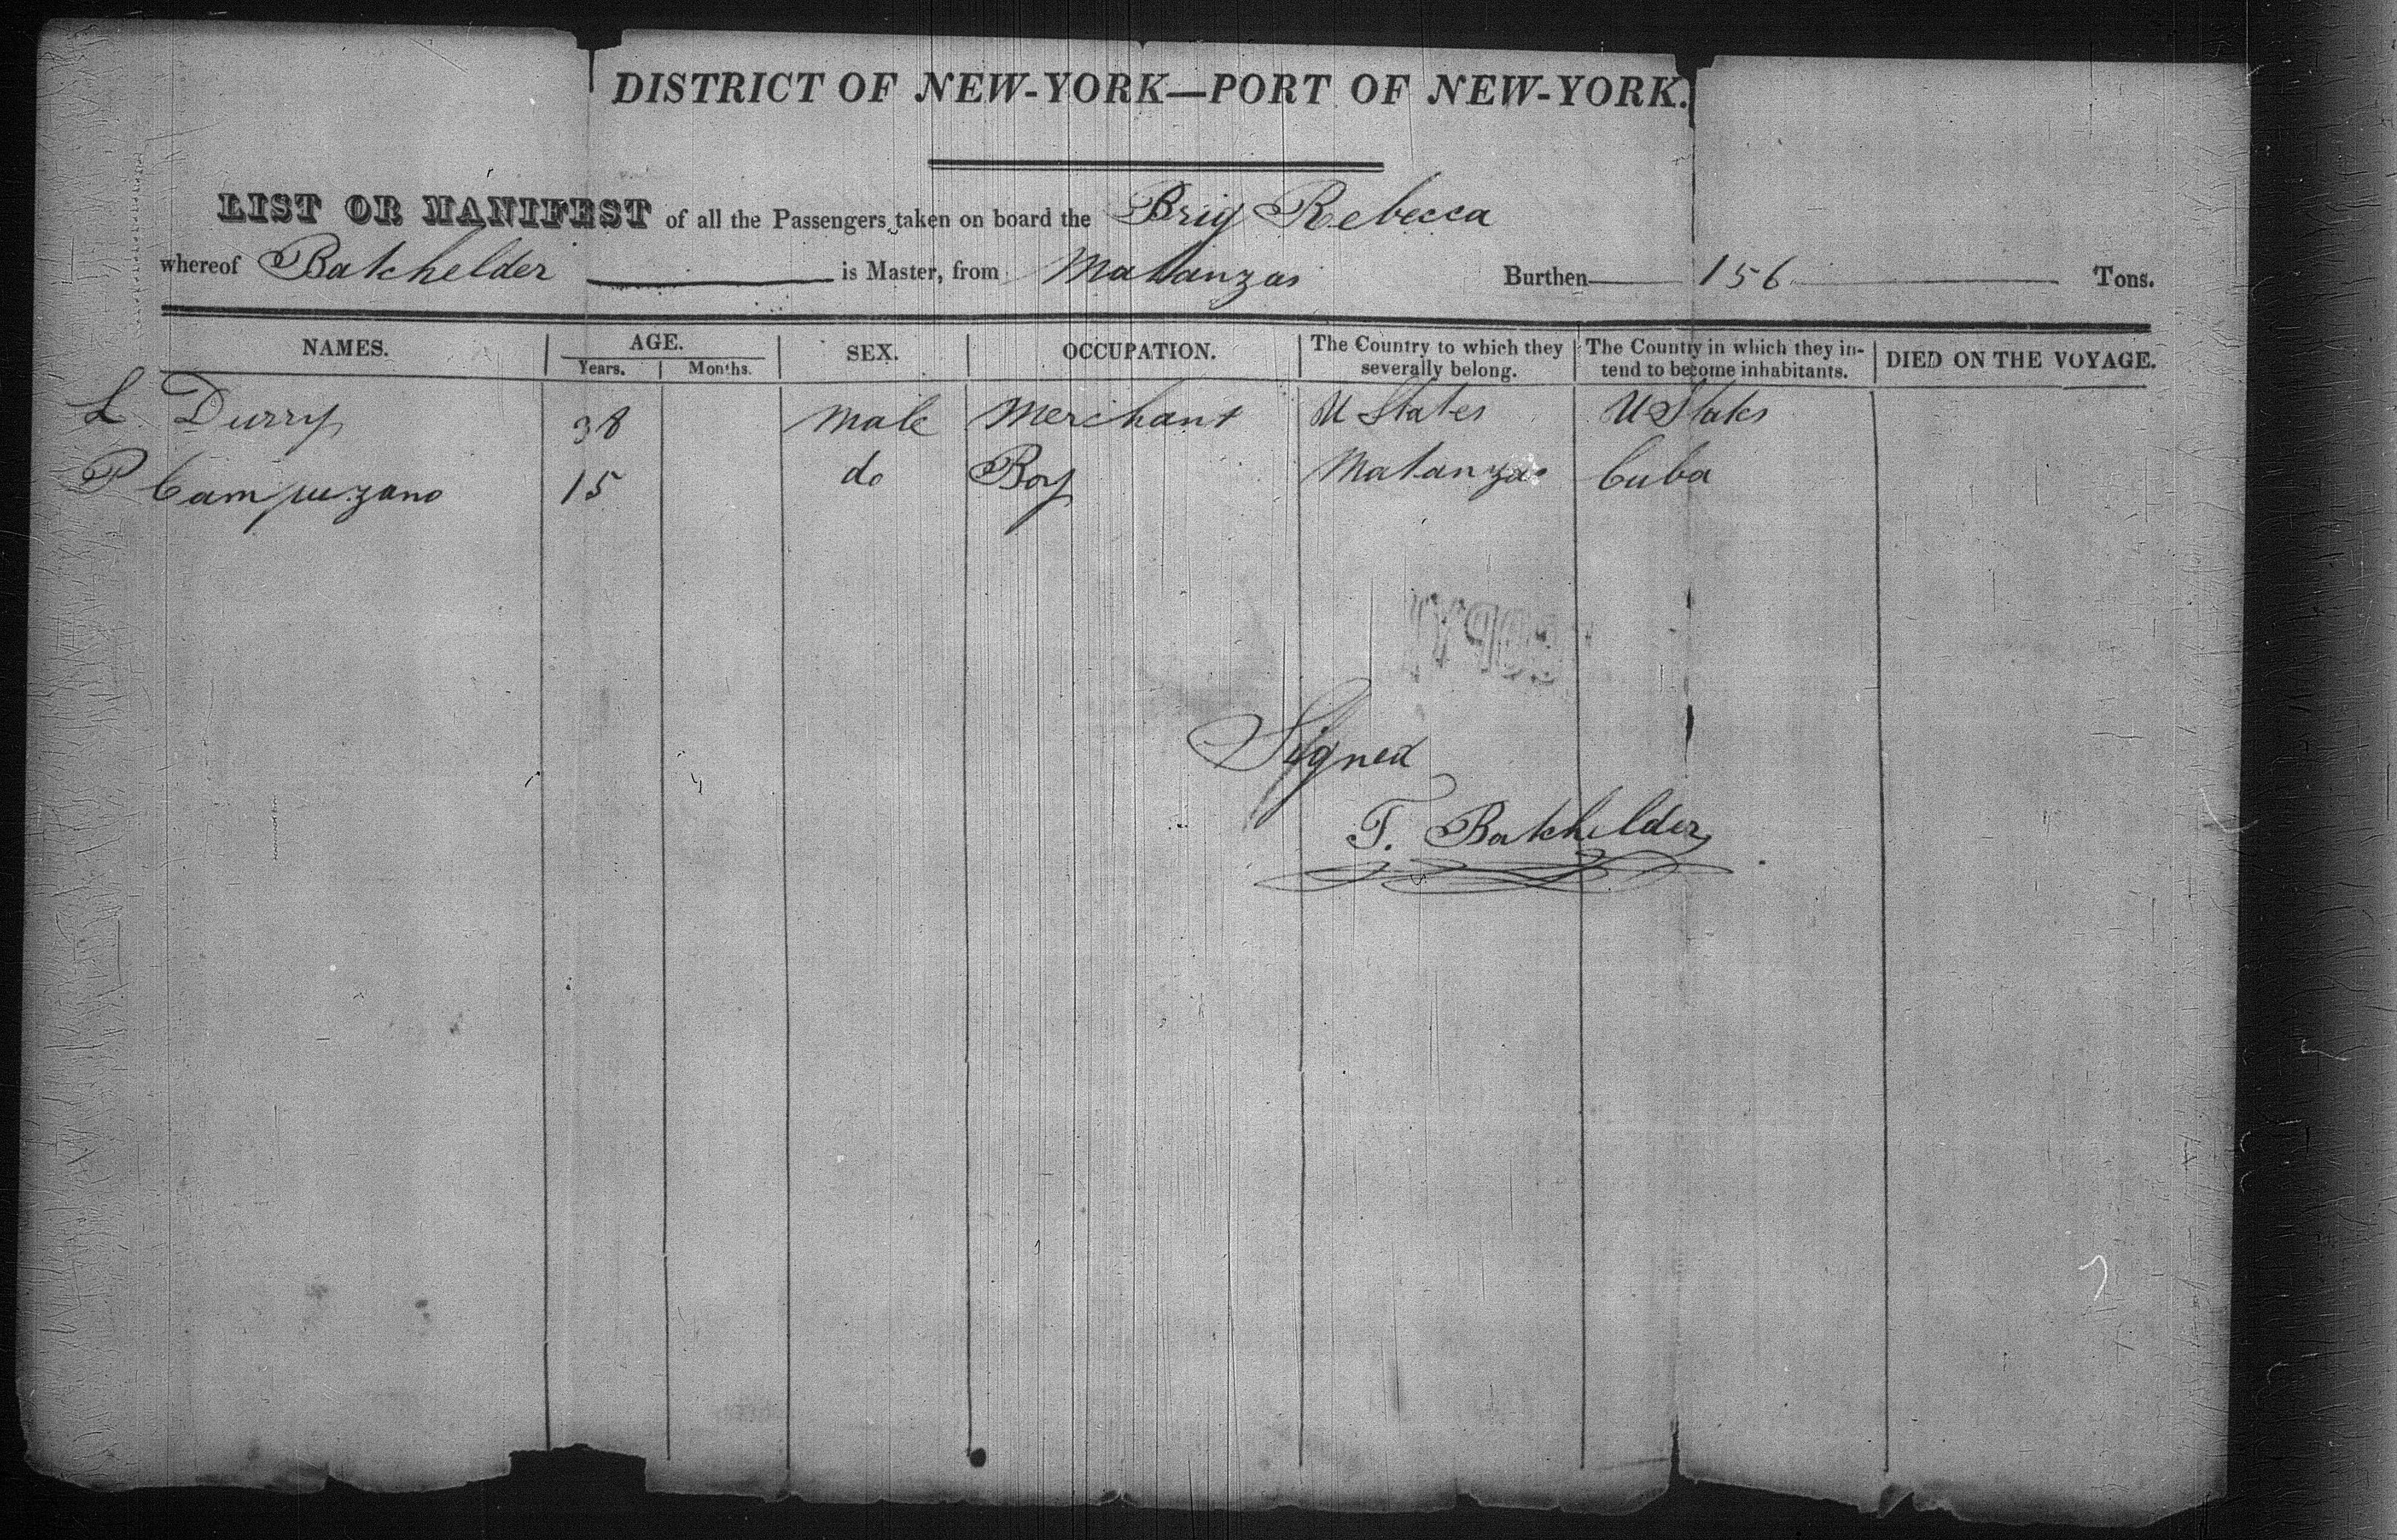 DISTRICT OF NEW-YORK—PORT OF NEW-YORK.
LIST OR MANIFEST of all the Passengers taken on board the Brig Rebecca
whereof Batchelder is Master, from Matanzas Burthen 156 Tons.
NAMES. AGE. SEX. OCCUPATION. The Country to which they severally belong. The Country in which they in-tend to become inhabitants. DIED ON THE VOYAGE.
Years. Months.
L Durry 38 Male Merchant U States U States
P Campuzano 15 do Boy Matanzas Cuba
Signed
T. Batchelder